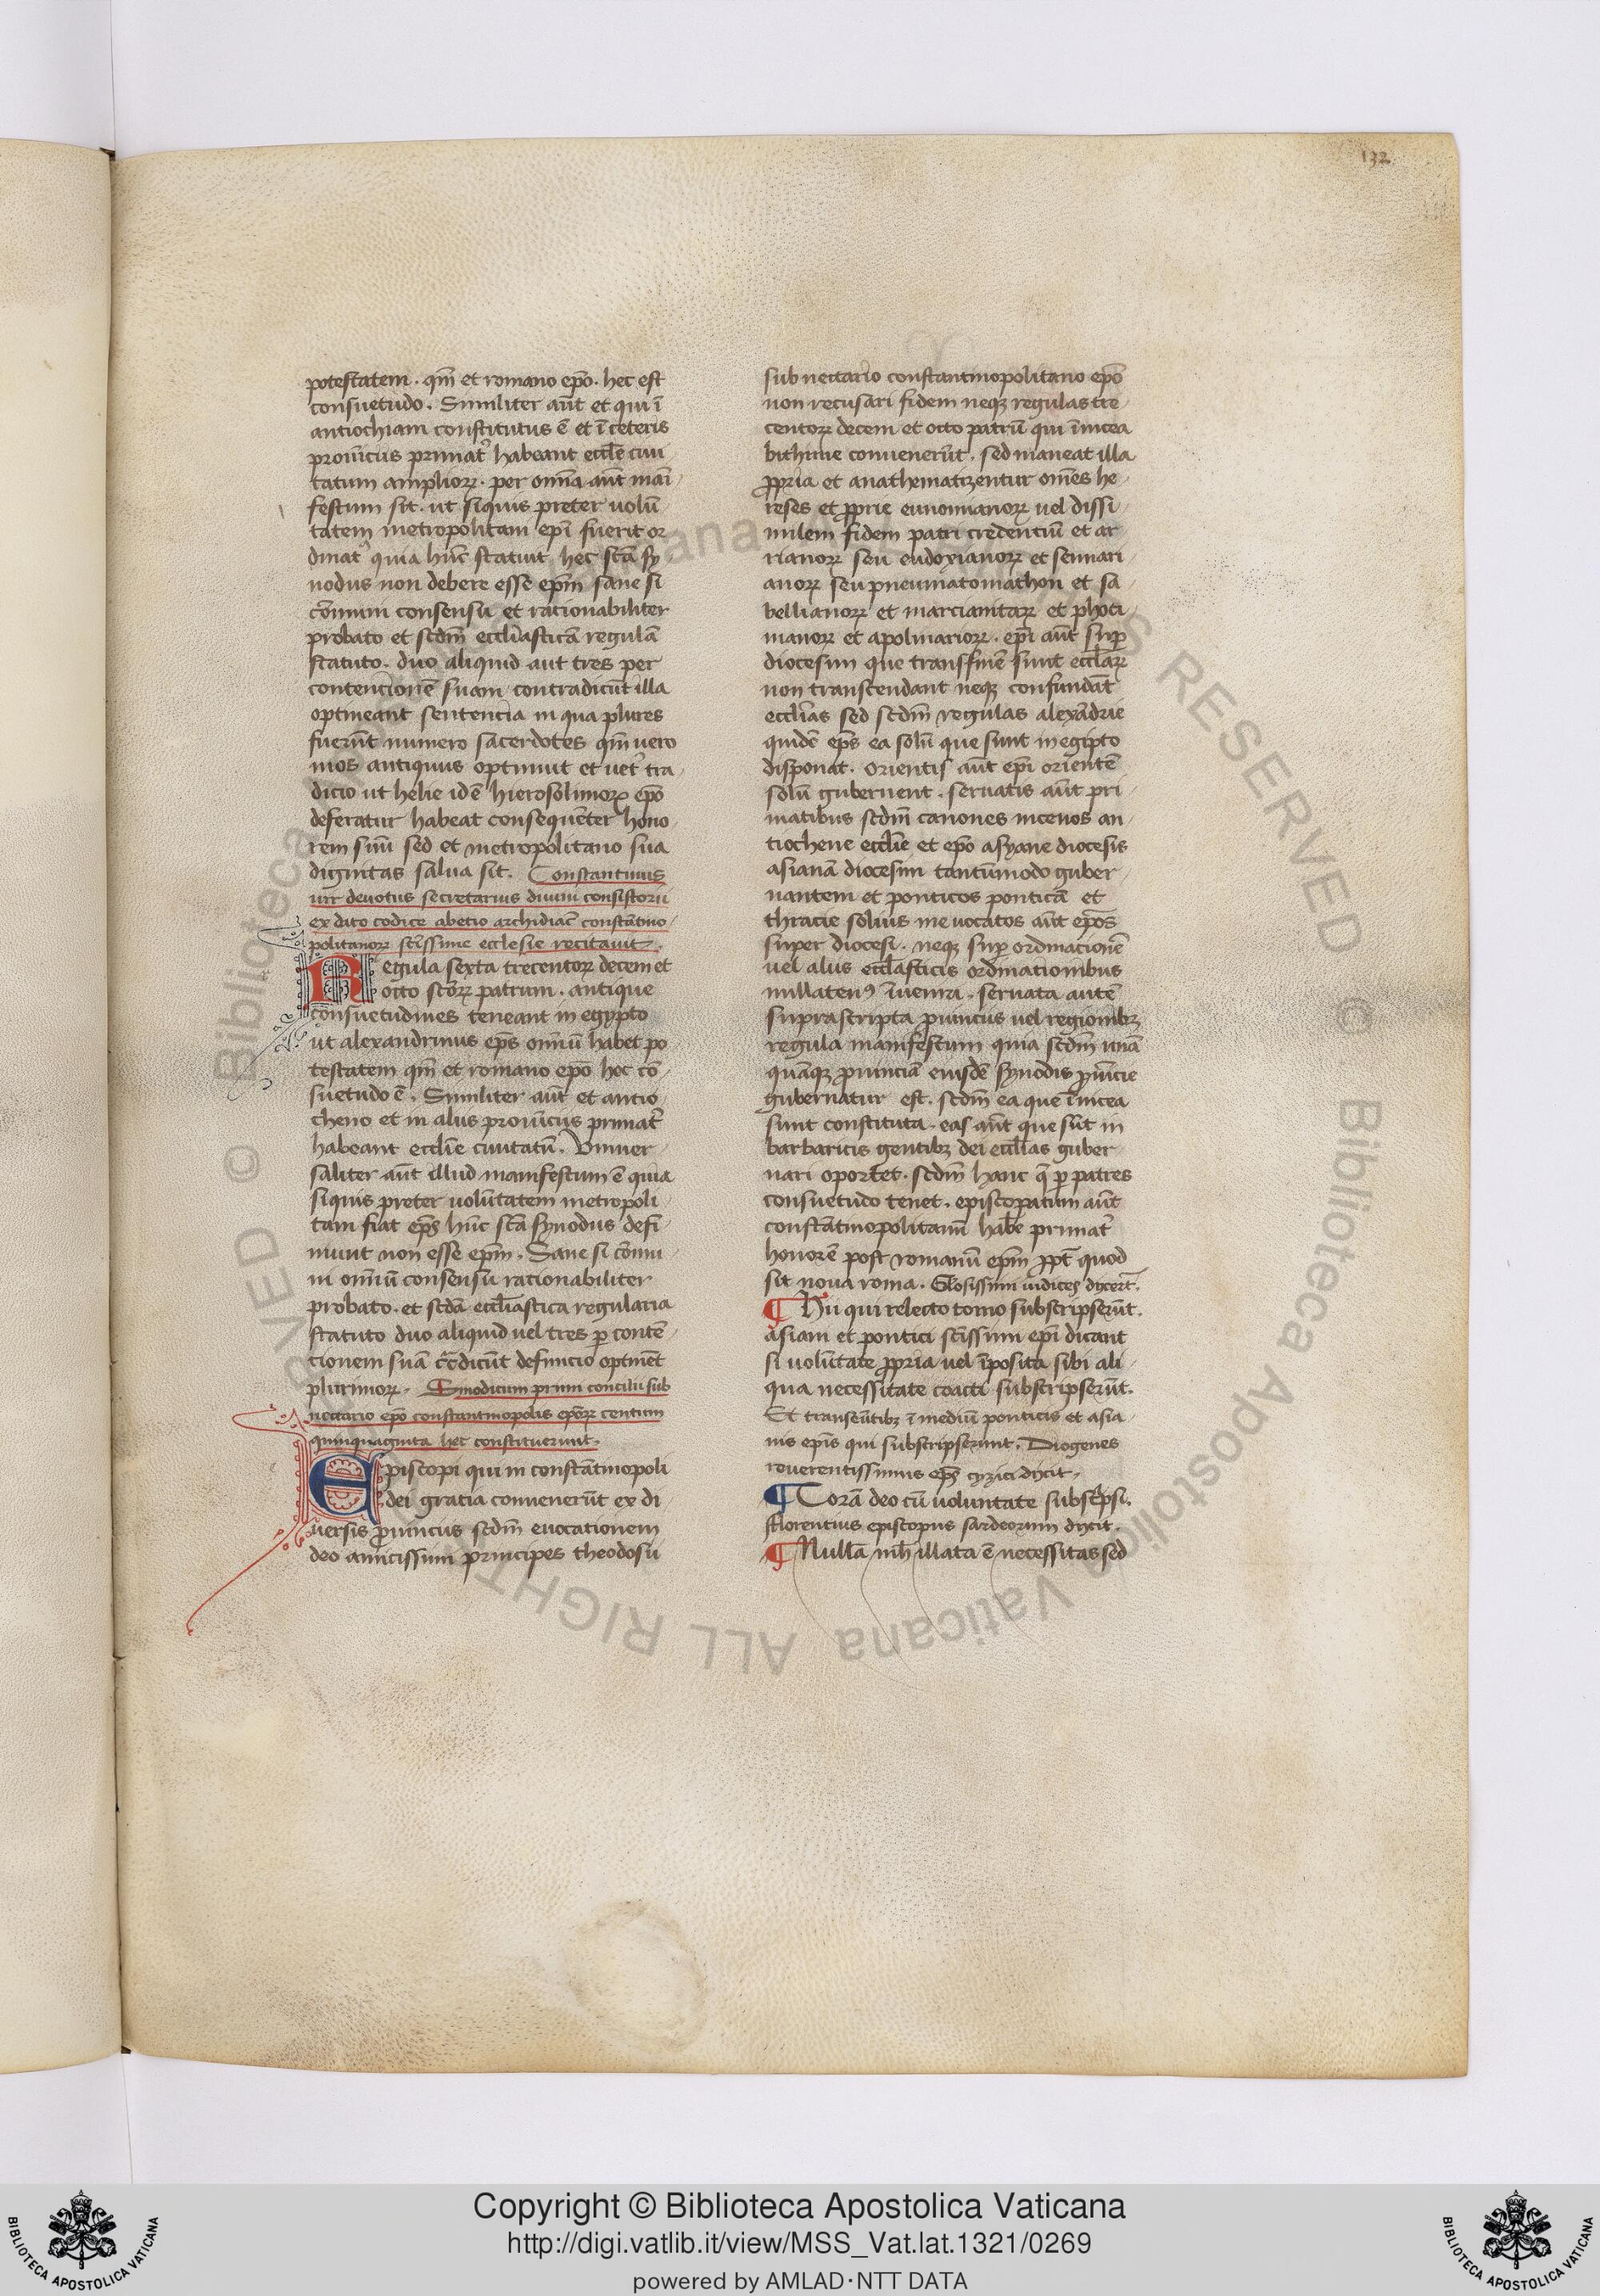 132
potestatem . qm̄ et romano ep̄o . hec est
consuetudo . Similiter aūt et qui ī
antiochiam constitutus ē et ī ceteris
prouīciis primatꝰ habeant eccl̄e ciui
tatum ampliorꝝ . per om̄ia aūt mani
festum sit . ut siquis preter uolū
tatem metropolitani ep̄i fuerit or
dinatꝰ quia hūc statuit hec sc̄a sy
nodus non debere esse ep̄m sane si
cōmuni consensu et racionabiliter
probato et scdm̄ eccl̄iasticā regulā
statuto . duo aliquid aut tres per
contencionē suam contradicūt illa
optineant sentencia in qua plures
fuerūt numero sacerdotes qm̄ uero
mos antiquus optinuit et uetꝰ tra
dicio ut helie idē hierosolimorꝝ ep̄o
deferatur habeat consequēter hono
rem suū sed et metropolitano sua
dignitas salua sit . Constantinus
uir deuotus secretarius diuini consistorii
ex dito codice abetio archidiac̄ constātino
politanorꝝ sc̄issime ecclesie recitauit .
Regula sexta trecentorꝝ decem et
octo sc̄orꝝ patrum . antique
consuetudines teneant in egypto
ut alexandrinus ep̄s om̄iū habet po
testatem qm̄ et romano ep̄o hec cō
suetudo ē . Similiter aūt et antio
cheno et in aliis prouīciis primatꝰ
habeant eccl̄ie ciuitatū . Uniuer
saliter aūt illud manifestum ē quia
siquis preter uolūtatem metropoli
tani fiat ep̄s hūc sc̄a synodus defi
niuit non esse ep̄m . Sane si cōmu
ni om̄iū consensu rationabiliter
probato . et scdā eccl̄iastica regularia
statuto duo aliquid uel tres ꝑ conte
tionem suā cͣdicūt definicio optinet
plurimorꝝ . Sinodicum primi concilii sub
nectario ep̄o constantinopolis ep̄orꝝ centum
quinquaginta hec constituerunt .
Episcopi qui in constātinopoli
dei gratia conuenerūt ex di
uersis ꝓuinciis scdm̄ euocationem
deo amicissimi principes theodosii
sub nectario constantinopolitano ep̄o
non recusari fidem neqꝫ regulas tre
centorꝝ decem et octo patrū qui ī nicea
bithinie conuenerūt . sed maneat illa
ꝓpria et anathematizentur om̄es he
reses et ꝓprie eunomianorꝝ uel dissi
milem fidem patri credentiū et ar
rianorꝝ seu eudoxianorꝝ et semiari
anorꝝ seu pneumatomathon et sa
bellianorꝝ et marcianitarꝝ et photi
nianorꝝ et apolinariorꝝ . ep̄i aūt suꝑ
diocesim que transfinē sunt eccl̄iarꝝ
non transcendant neqꝫ confundāt
eccl̄ias sed scdm̄ regulas alexādrie
quidē ep̄s ea solū que sunt in egipto
disponat . orientis aūt ep̄i orientē
solū gubernent . seruatis aūt pri
matibus scdm̄ canones nicenos an
tiochene eccl̄ie et ep̄o asyane diocesis
asianā diocesim tantūmodo guber
nantem et ponticos ponticā et
thracie solius ine uocatos aūt ep̄os
super diocesi . neqꝫ suꝑ ordinacionē
uel aliis eccl̄iasticis ordinationibus
nullatenꝰ īueniri . seruata autē
suprascripta ꝓuinciis uel regionibꝫ
regula manifestum quia scdm̄ unā
quāqꝫ ꝓuinciā eiusdē synodis ꝓuīcie
gubernatur est . scdm̄ ea que ī nicea
sunt constituta . eas aūt que sūt in
barbaricis gentibꝫ dei eccl̄ias guber
nari oportet . scdm̄ hanc q̄ ꝑ patres
consuetudo tenet . episcopatum aūt
constātinopolitanū habē primatꝰ
honorē post romanū ep̄m ꝓpt̄ quod
sit noua roma . Gl̄osissimi iudices dixert̄ .
¶ Hii qui relecto tomo subscripserūt .
asiani et pontici sc̄issimi ep̄i dicant
si uolūtate ꝓpria uel īposita sibi ali
qua necessitate coacti subscripserūt .
Et transeūtibꝫ ī mediū ponticis et asia
nis ep̄is qui subscripserunt . Diogenes
reuerentissimus ep̄s cyzici dixit .
¶ Corā deo cū uoluntate subscͥpsi .
florentius episcopus sardeorum dixit .
¶ Nulla mh̄ illata ē necessitas sed
Copyright © Biblioteca Apostolica Vaticana
http://digi.vatlib.it/view/MSS_Vat.lat.1321/0269
powered by AMLAD·NTT DATA
BIBLIOTECA APOSTOLICA VATICANA
BIBLIOTECA APOSTOLICA VATICANA
© Biblioteca Apostolica Vaticana ALL RIGHTS RESERVED © Biblioteca Apostolica Vaticana ALL RIGHTS RESERVED